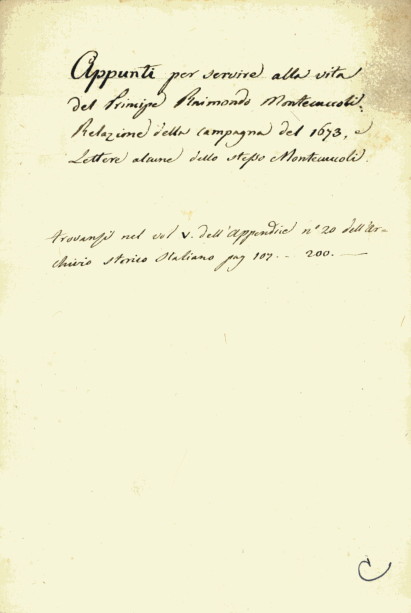 Appunti per servire alla vita
del Principe Raimondo Montecuccoli.
Relazione della campagna del 1673, e
Lettere alcune dello stesso Montecuccoli.
trovansi nel vol V. dell'Appendice n° 20 dell'Ar=
chivio storico Italiano pag 107. - 200. —
C